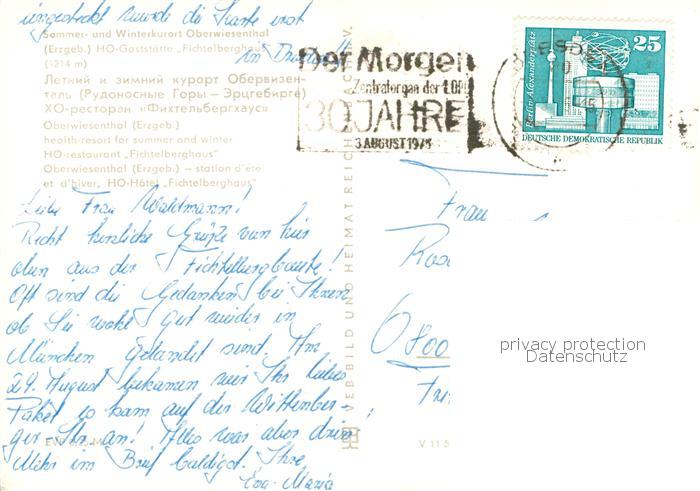 eingesteckt wurde die Karte erst
in Dresden!!
Sommer- und Winterkurort Oberwiesenthal
(Erzgeb.) HO-Gaststätte „Fichtelberghaus"
(1214 m)
Летний и зимний курорт Обервизен-
таль (Рудоносные Горы – Эрцгебирге)
ХО-ресторан «Фихтельбергхаус»
Oberwiesenthal (Erzgeb.)
health-resort for summer and winter
HO-restaurant „Fichtelberghaus"
Oberwiesenthal (Erzgeb.) – station d'été
et d'hiver, HO-Hôtel „Fichtelberghaus"
Liebe Frau Waldmann!
Recht herzliche Grüße von hier
oben aus der Fichtelbergbaute!
Oft sind die Gedanken bei Ihnen,
ob Sie wohl gut wieder in
München gelandet sind. Am
29. August bekamen wir Ihr liebes
Paket so kam auf der Wittenber-
ger Str. an! Alles war aber drin
Mehr im Brief baldigst. Ihre
Eva-Maria
VEB BILD UND HEIMAT REICHENBACH I. V.
Der Morgen
Zentralorgan der LDPD
30 JAHRE
3. AUGUST 1975
25
Berlin, Alexanderplatz
DEUTSCHE DEMOKRATISCHE REPUBLIK
Frau
Ros
800
V 11 5
privacy protection
Datenschutz